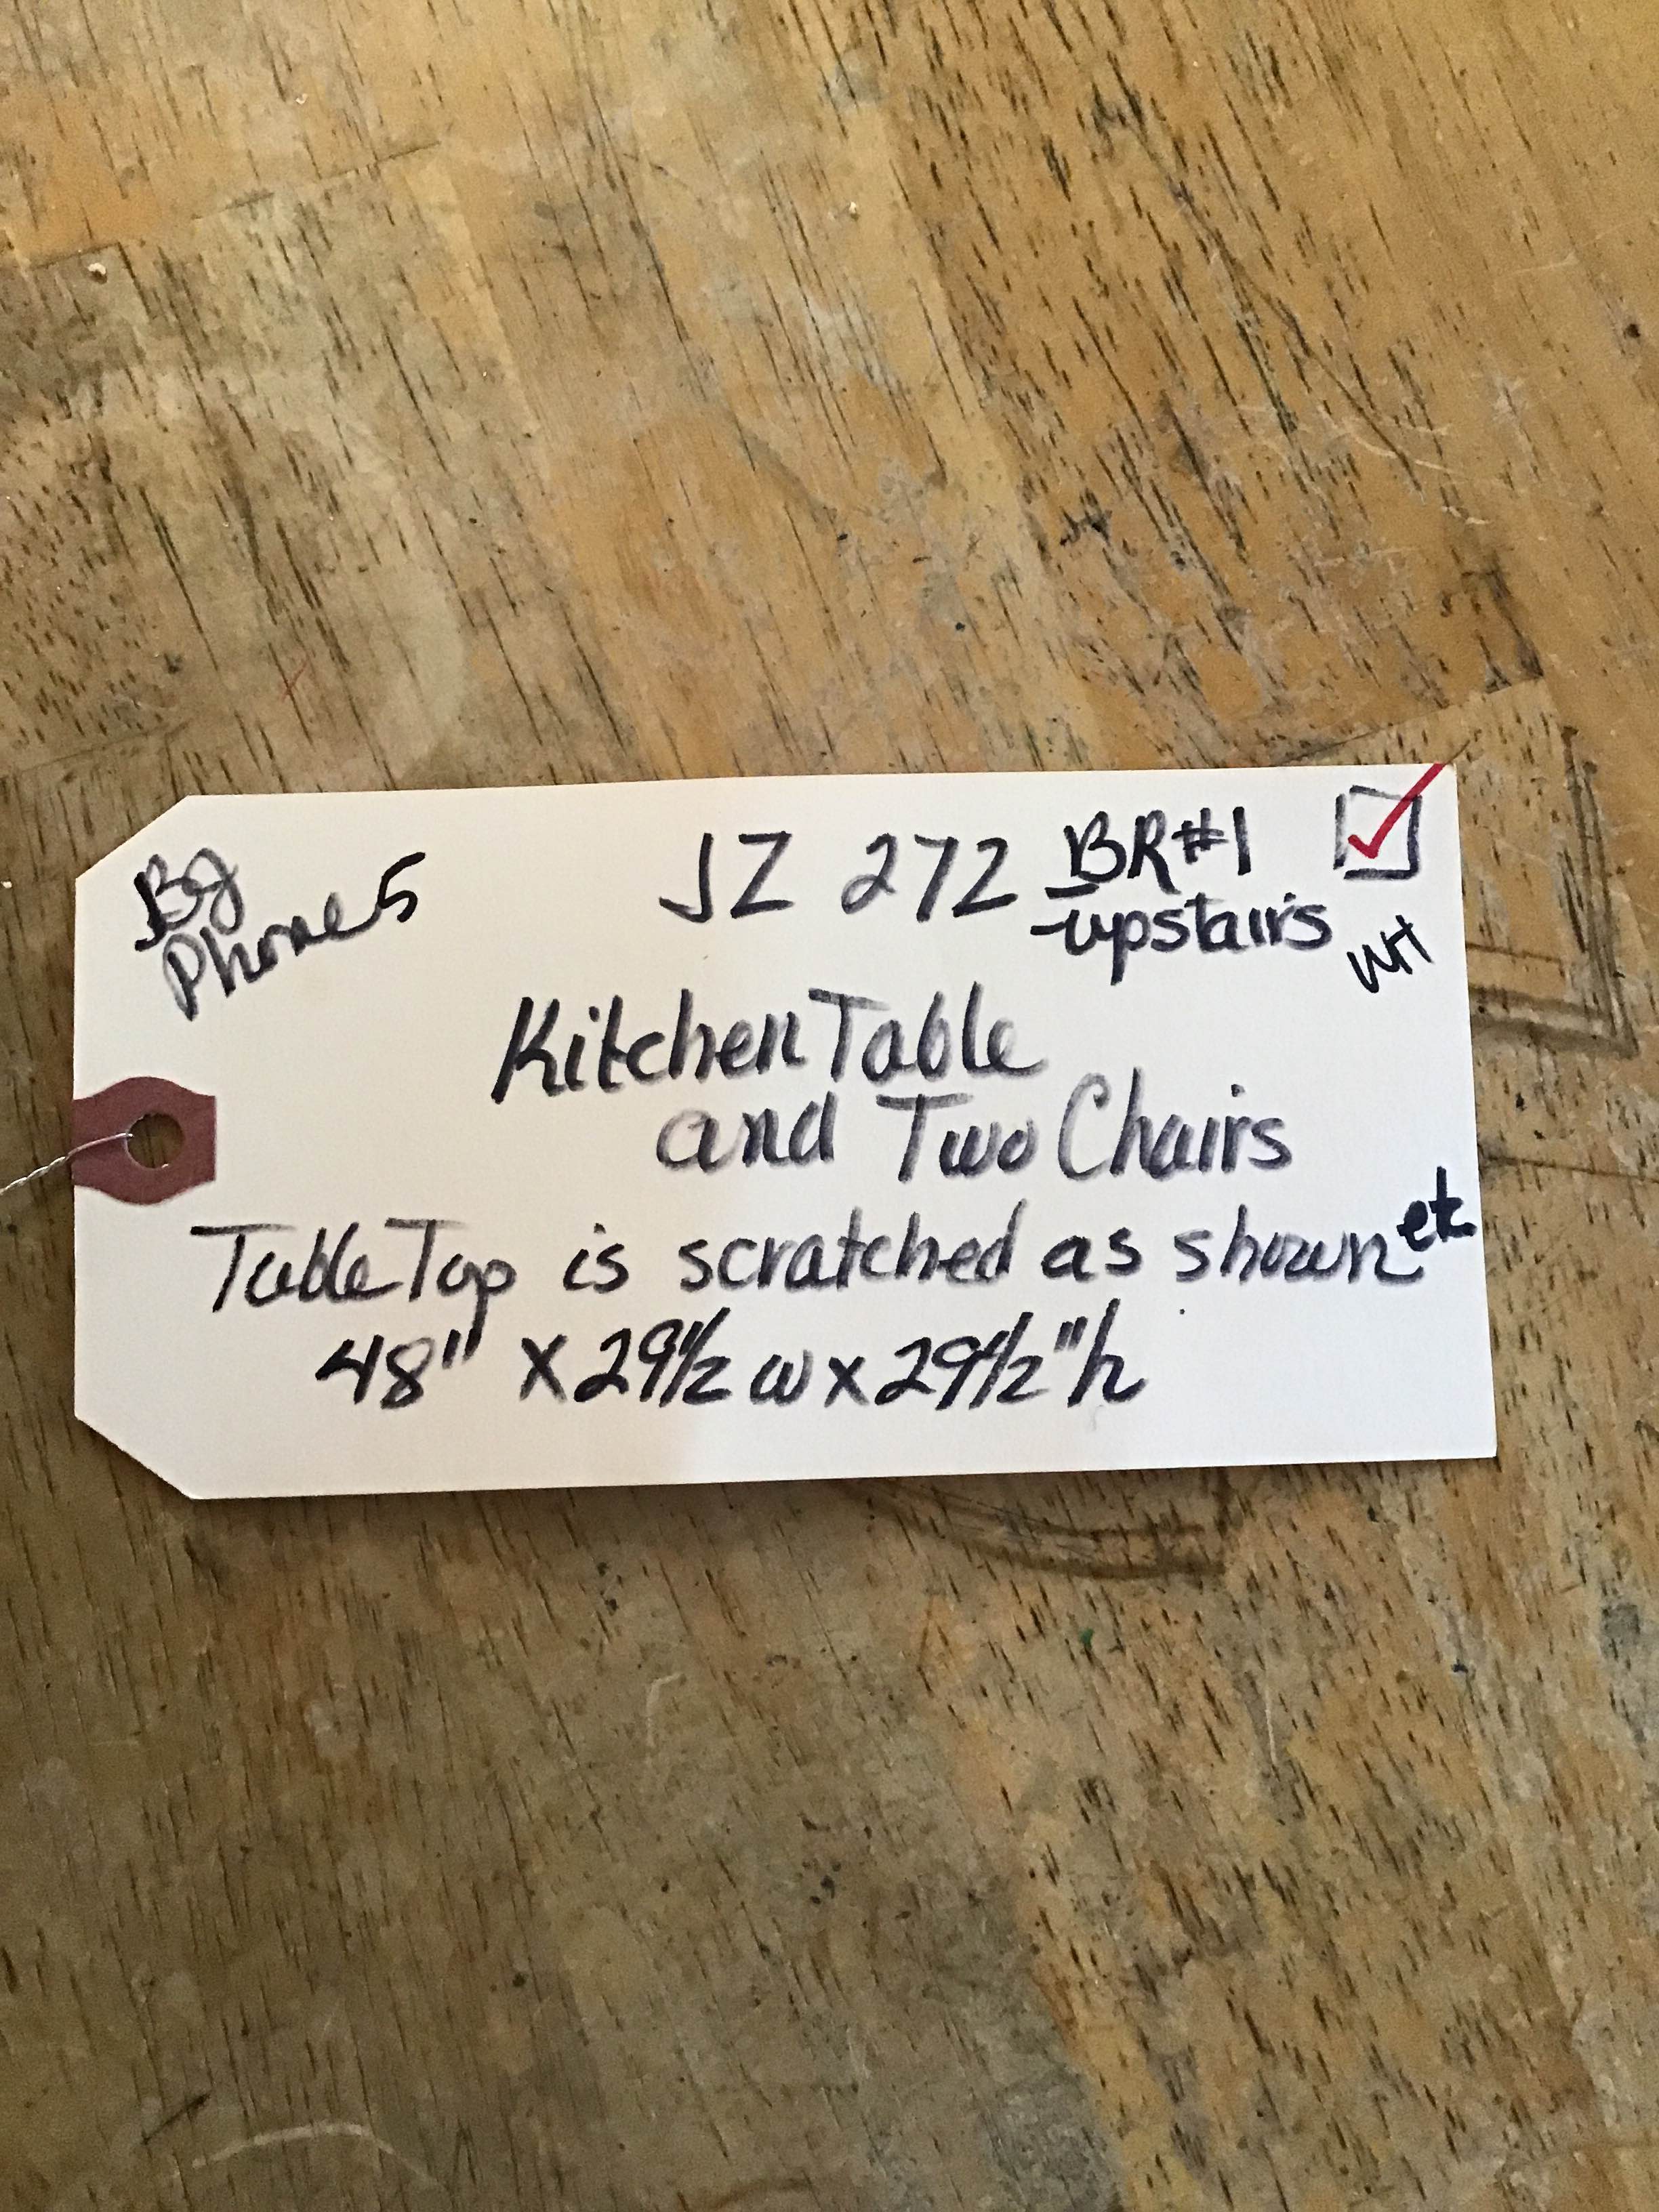 BJ
Phone 5
JZ 272 BR#1
upstairs
WH
Kitchen Table
and Two Chairs
Table Top is scratched as shown etc
48" x 29 1/2 w x 29 1/2" h